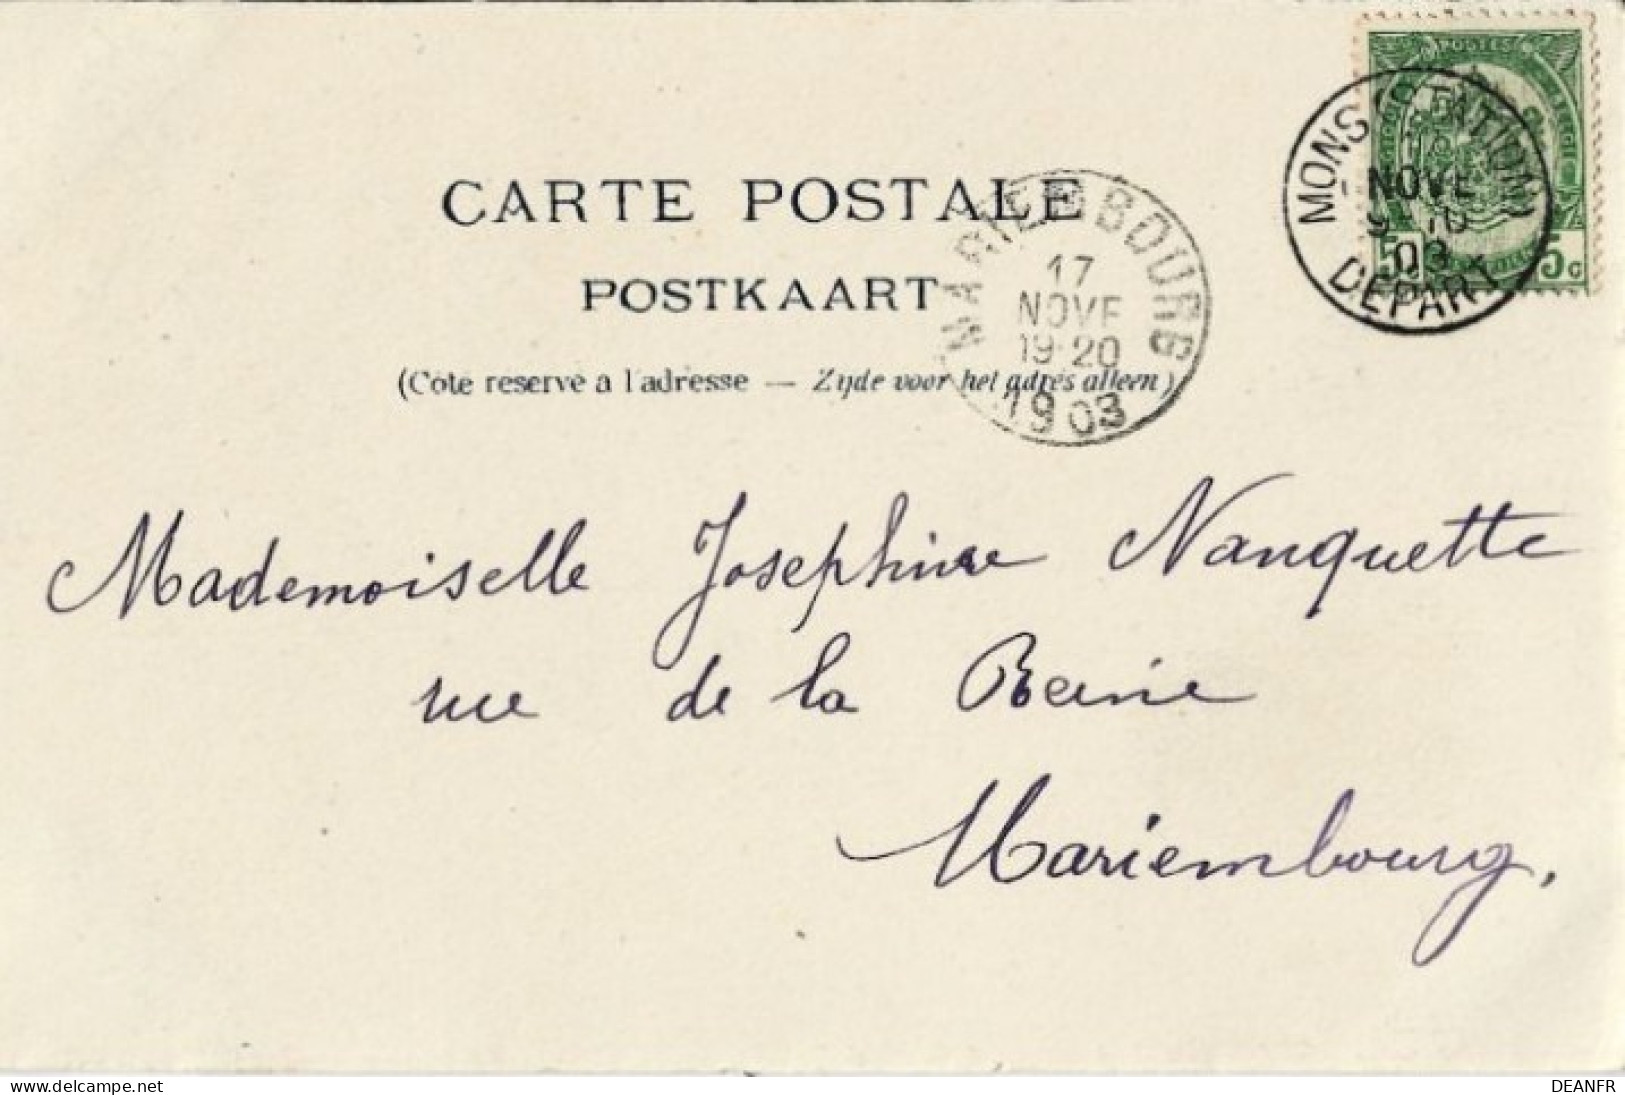 POSTES
5 5 c
MONS (STATION)
NOVE
9-10
03
DEPART
CARTE POSTALE
POSTKAART
MARIEMBOURG
17
NOVE
19-20
1903
(Côté réservé à l'adresse — Zijde voor het adres alleen)
Mademoiselle Josephine Nanquette
rue de la Reine
Mariembourg.
delcampe.net
DEANFR